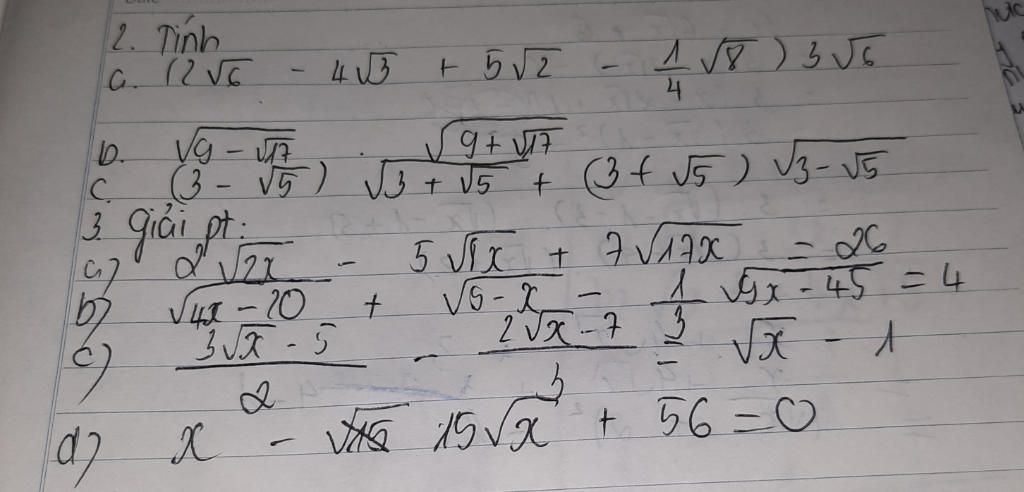 2. Tính
a. (2√6 - 4√3 + 5√2 - 1/4 √8) 3√6
b. √(9 - √17) . √(9 + √17)
c. (3 - √5) √(3 + √5) + (3 + √5) √(3 - √5)
3. Giải pt:
a) 2√(2x) - 5√(8x) + 7√(17x) = 26
b) √(4x - 20) + √(5 - x) - 1/3 √(9x - 45) = 4
c) (3√x - 5)/2 - (2√x - 7)/3 = √x - 1
d) x - 15√x + 56 = 0